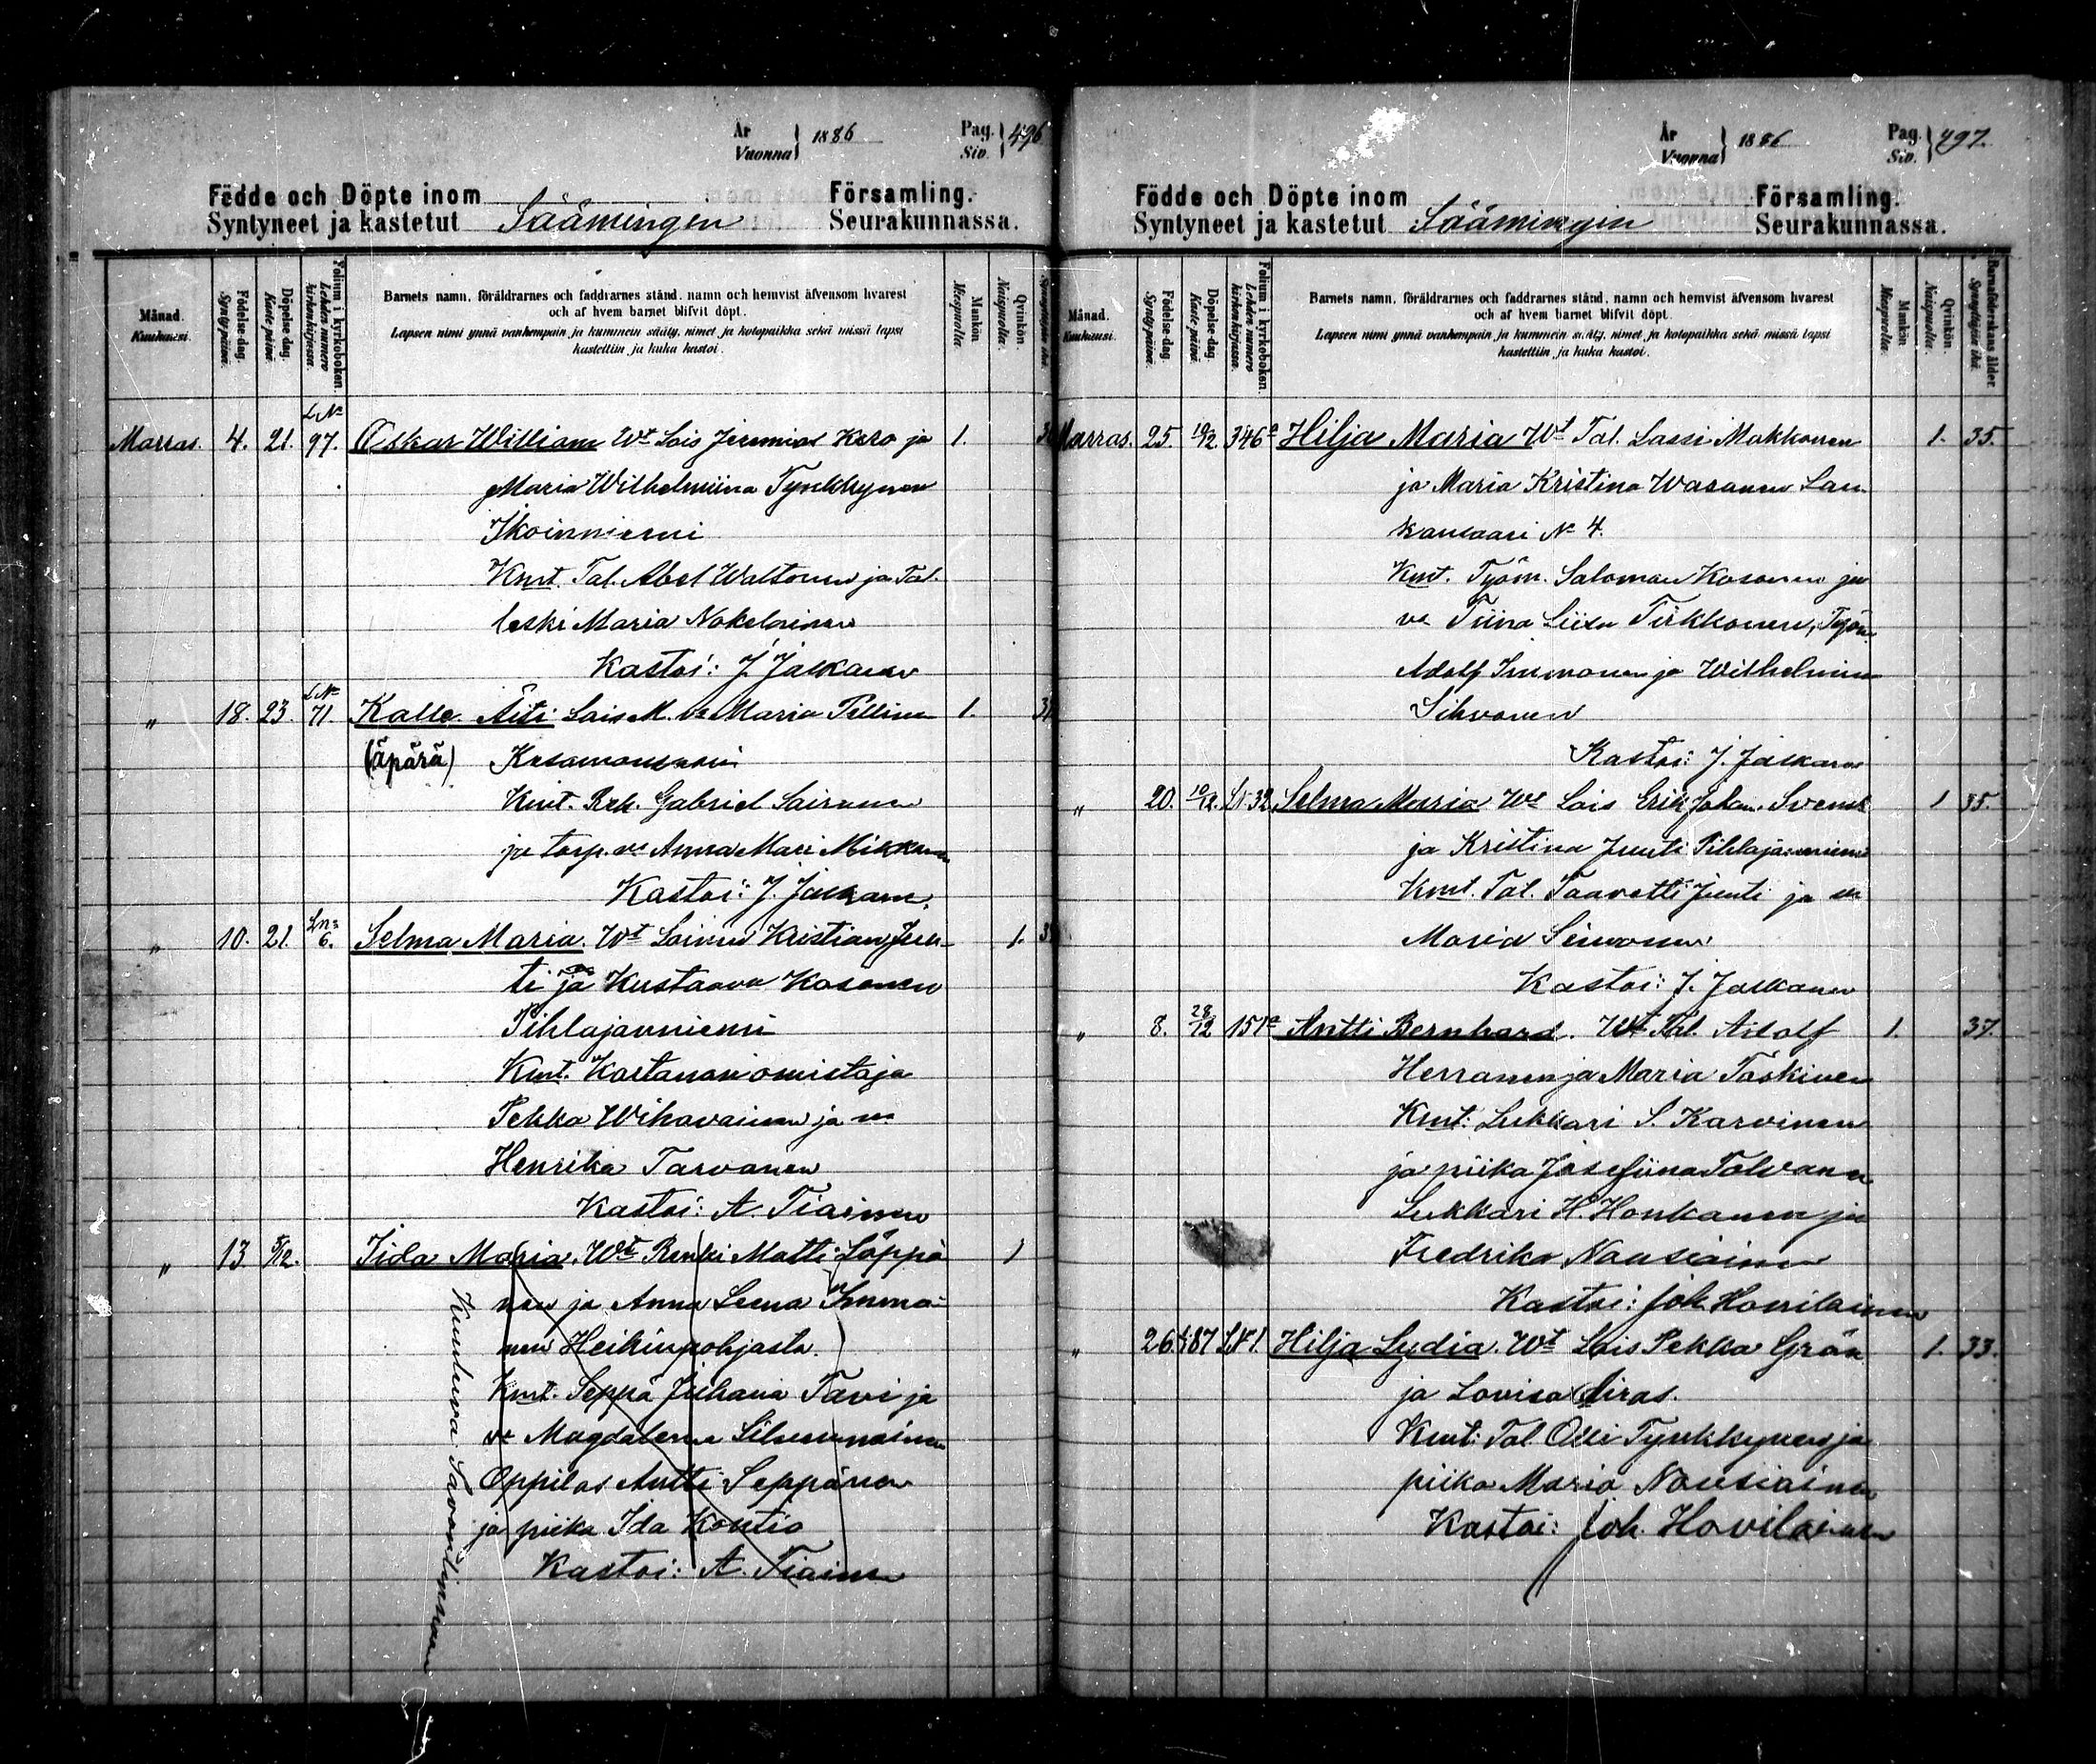 År
Vuonna } 1886
Pag.
Siv. } 496
Födde och Döpte inom Församling.
Syntyneet ja kastetut Säämingen Seurakunnassa.
Månad.
Kuukausi.
Födelse-dag.
Syntypäivä.
Döpelse-dag.
Kaste päivä.
Folium i kyrkoboken.
Lehden numero kirkonkirjassa.
Barnets namn, föräldrarnes och faddrarnes stånd, namn och hemvist äfvensom hvarest
och af hvem barnet blifvit döpt.
Lapsen nimi ynnä vanhempain ja kummein sääty, nimet ja kotopaikka sekä missä lapsi
kastettiin ja kuka kastoi.
Mankön
Miespuolia.
Qvinkön
Naispuolia.
L. No
Marras. 4. 21. 97. Oskar William Wt Lois Jeremias Kero ja 1.
Maria Wilhelmiina Tynkkynen
Ikoinniemi
Kmt. Tal. Abel Waltonen ja Tal.
leski Maria Nokelainen
Kastoi: J. Jalkanen
L No
" 18. 23. 71 Kalle. Äiti Lois M. va Maria Pellinen 1.
(äpärä)
Kmt. Rek. Gabriel Sairanen
ja torp. va Anna Mari Mikkonen
Kastoi: J. Jalkanen.
" 10. 21. Ln: 6. Selma Maria. Wt Loinen Kristian Juu- 1.
ti ja Kustaava Kosonen
Pihlajanniemi
Kmt. Kartanon omistaja
Pekka Wihavainen ja va
Henrika Tarvanen
Kastoi: A. Tiainen
" 13 5/12. Iida Maria. Wt Renki Matti Löppö 1
nen ja Anna Leena Immo-
nen Heikinpohjasta.
Kmt. Seppä Juhana Tavi ja
va Magdaleena Silvennoinen
Oppilas Antti Seppänen
ja piika Ida Kontio
Kastoi: A. Tiainen
Kuuluva Savonlinnaan
År
Vuonna } 1886
Pag.
Siv. } 497.
Födde och Döpte inom Församling.
Syntyneet ja kastetut Säämingin Seurakunnassa.
Månad.
Kuukausi.
Födelse-dag.
Syntypäivä.
Döpelse-dag.
Kaste päivä.
Folium i kyrkoboken.
Lehden numero kirkonkirjassa.
Barnets namn, föräldrarnes och faddrarnes stånd, namn och hemvist äfvensom hvarest
och af hvem barnet blifvit döpt.
Lapsen nimi ynnä vanhempain ja kummein sääty, nimet ja kotopaikka sekä missä lapsi
kastettiin ja kuka kastoi.
Mankön
Miespuolia.
Qvinkön.
Naispuolia.
Barnaföderskans ålder.
Synnyttäjän ikä.
Marras. 25. 10/12 346a Hilja Maria Wt Tal. Lassi Makkonen 1. 35.
ja Maria Kristina Wasanen Lau-
kansaari No 4.
Kmt. Työm. Saloman Kosonen ja
va Tiina Liisa Tirkkonen, Työm.
Adolf Immonen ja Wilhelmin
Sihvonen
Kastoi: J. Jalkanen
" 20. 10/12. LN 32 Selma Maria Wt Lois Erik Johan Svensk 1 35.
ja Kristina Juuti Pihlajanniemi
Kmt. Tal. Taavetti Juuti ja va
Maria Simonen
Kastoi: J. Jalkanen
" 8. 28/12 151a Antti Bernhard. Wt Tal. Adolf 1. 37.
Herranen ja Maria Taskinen
Kmt: Lukkari S. Karvinen
ja piika Josefiina Tolvanen
Lukkari H. Honkanen ja
Fredrika Nousiainen
Kastoi: Joh. Hovilainen
" 26. 87 LN 1. Hilja Lydia. Wt Lois Pekka Grön 1. 33.
ja Lovisa Siras.
Kmt: Tal. Olli Tynkkynen ja
piika Maria Nousiainen
Kastoi: Joh. Hovilainen